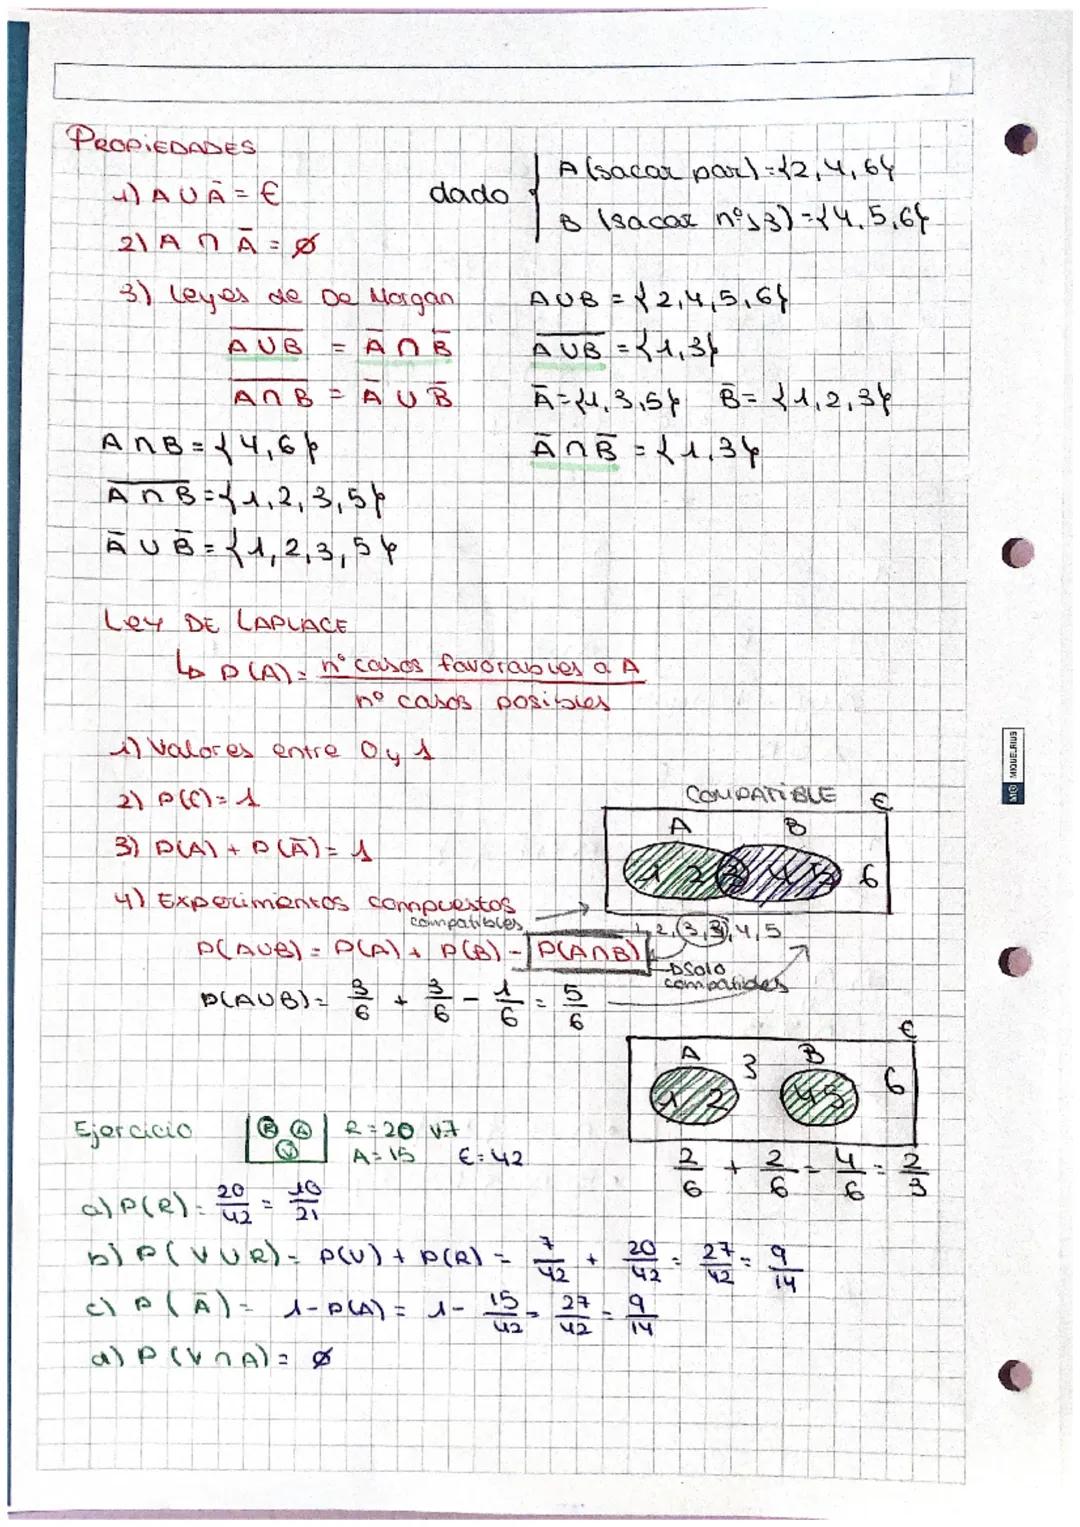 PROPIEDADES
1) A ∪ Ā = E
2) A ∩ Ā = ∅
3) Leyes de De Morgan
A̅ ̅∪̅ ̅B̅ = Ā ∩ B̅
A̅ ̅∩̅ ̅B̅ = Ā ∪ B̅
A ∩ B = {4,6}
A̅ ̅∩̅ ̅B̅ = {1,2,3,5}
Ā ∪ B̅ = {1,2,3,5}
dado
A (sacar par) = {2,4,6}
B (sacar nº>3) = {4,5,6}
A ∪ B = {2,4,5,6}
A̅ ̅∪̅ ̅B̅ = {1,3}
Ā = {1,3,5} B̅ = {1,2,3}
Ā ∩ B̅ = {1,3}
LEY DE LAPLACE
↳ P(A) = nº casos favorables a A / nº casos posibles
1) Valores entre 0 y 1
2) P(E) = 1
3) P(A) + P(Ā) = 1
4) Experimentos compuestos
compatibles
P(A∪B) = P(A) + P(B) - P(A∩B)
→ Solo compatibles
P(A∪B) = 3/6 + 3/6 - 1/6 = 5/6
COMPATIBLE E
A B
1 2 3 4 5 6
1,2,(3,3),4,5
E
A 3 B 6
1 2 4 5
2/6 + 2/6 = 4/6 = 2/3
Ejercicio
R A V
R = 20 V7
A = 15 E = 42
a) P(R) = 20/42 = 10/21
b) P(V ∪ R) = P(V) + P(R) = 7/42 + 20/42 = 27/42 = 9/14
c) P(Ā) = 1 - P(A) = 1 - 15/42 = 27/42 = 9/14
d) P(V ∩ A) = ∅
MIQUELRIUS